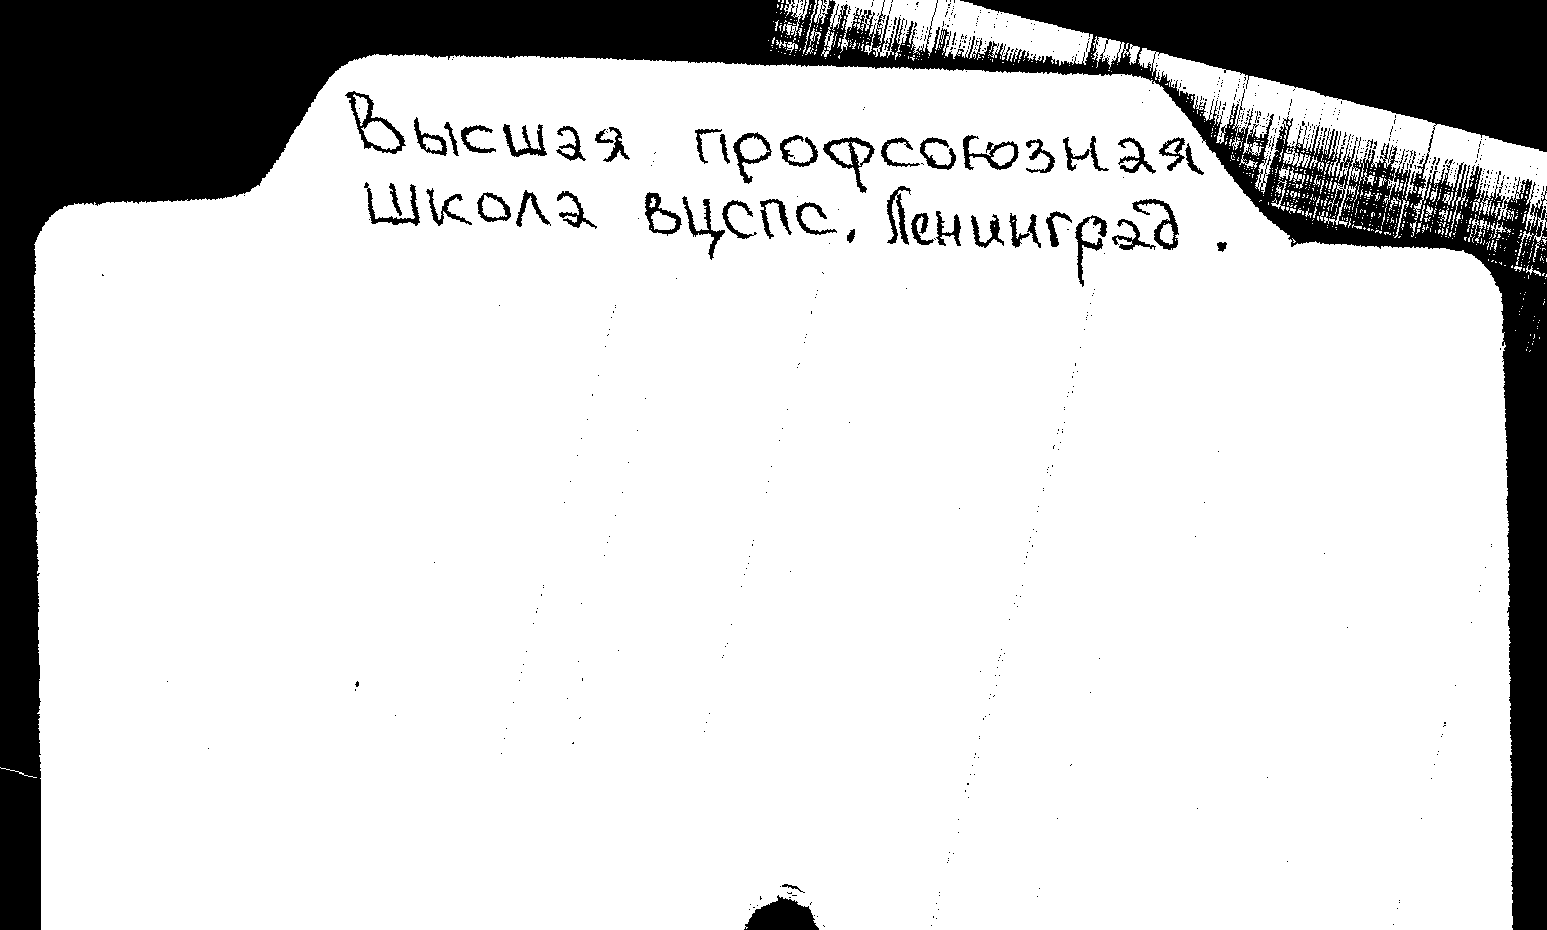 Высшая профсоюзная
школа ВЦСПС. Ленинград.